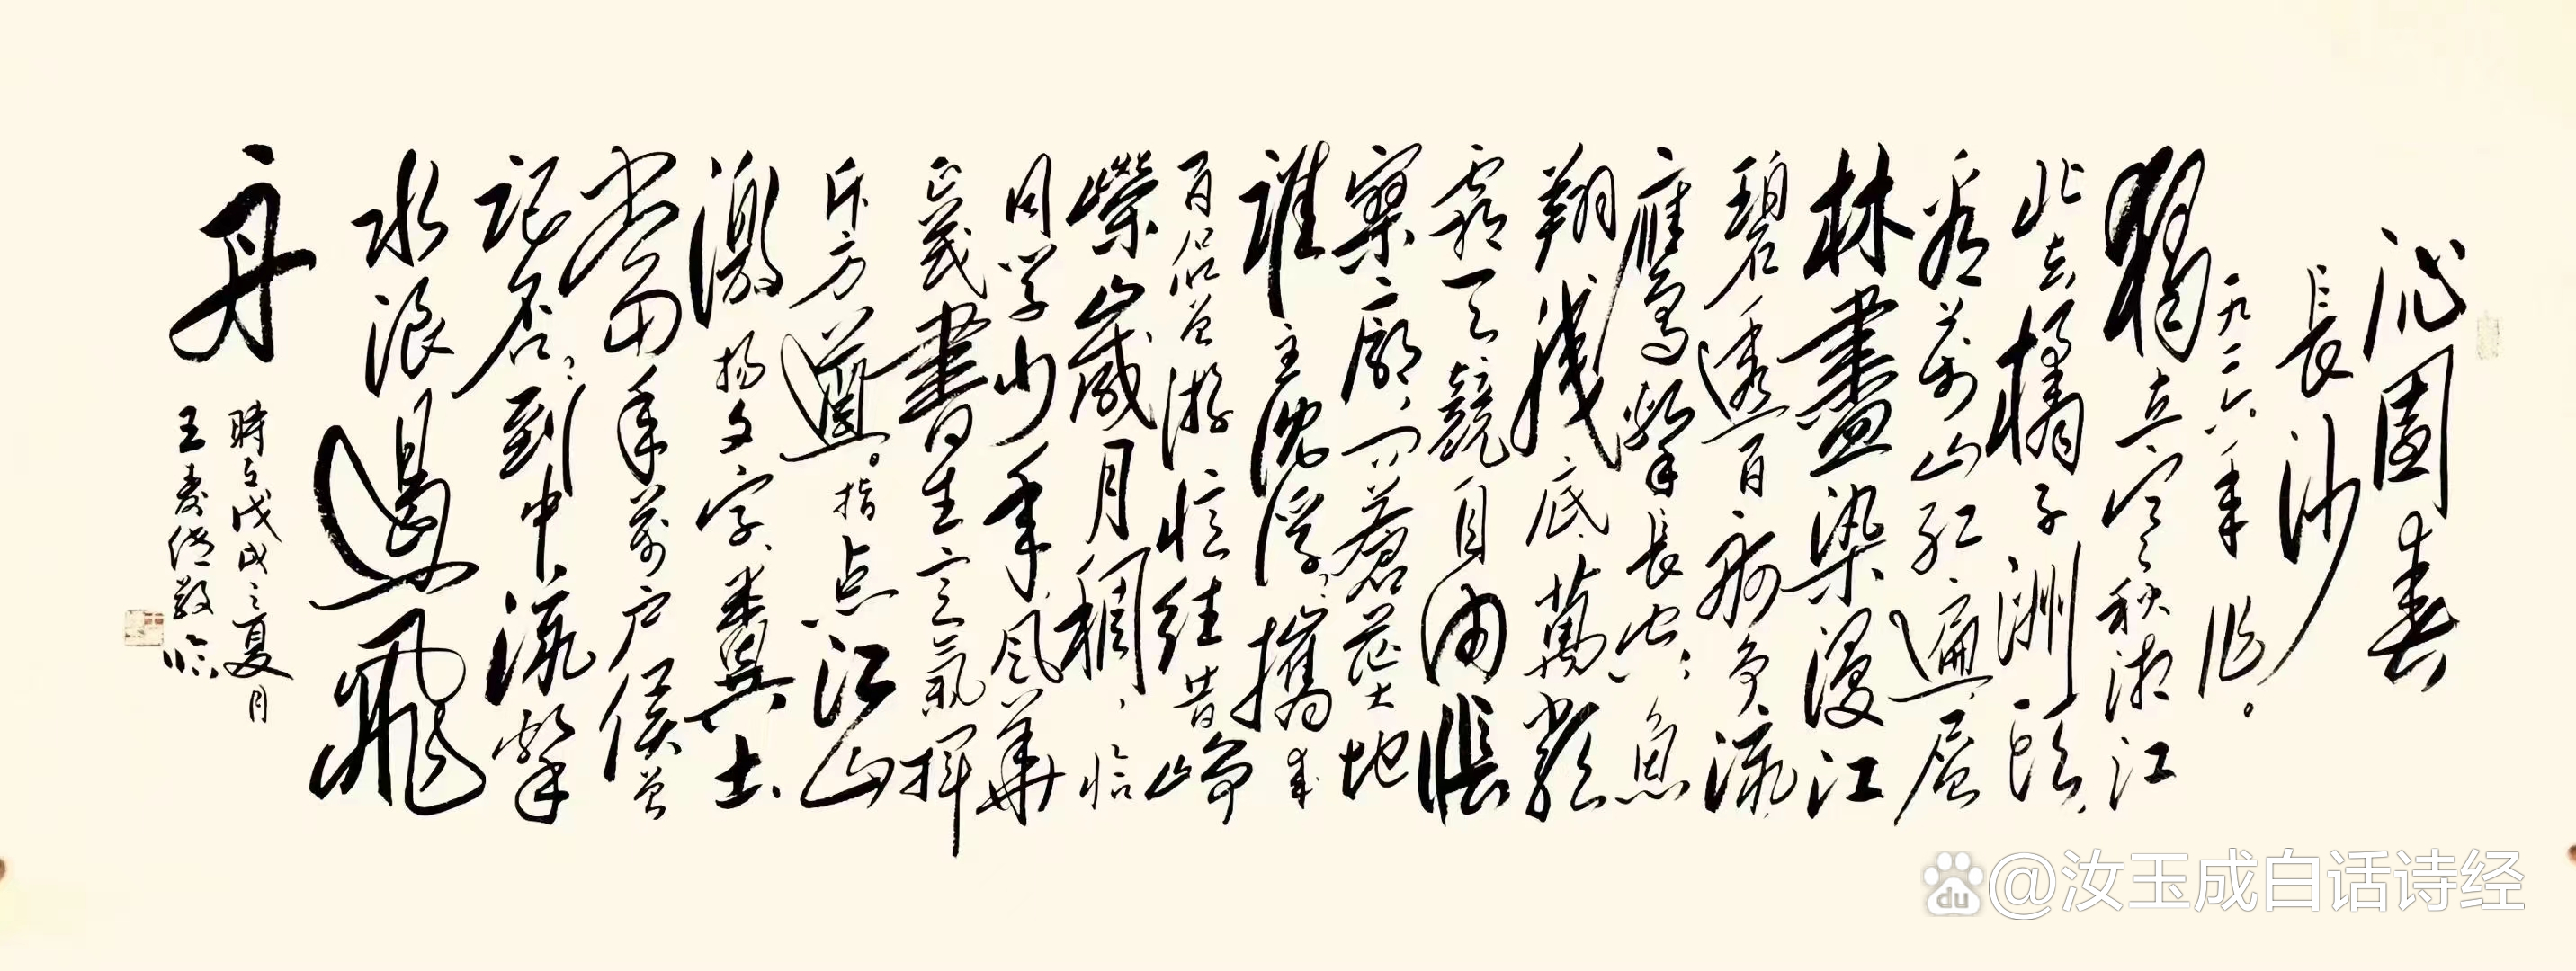 沁園春
長沙
一九二六年作。
獨立寒秋湘江
北去橘子洲頭,
看萬山紅遍層
林盡染漫江
碧透百舸争流
鷹擊長空,魚
翔淺底萬類
霜天競自由悵
寥廓,問蒼茫大地
誰主沈浮、攜来
百侣曾游憶往昔崢
嶸歲月稠、恰
同學少年、風華
正茂書生意氣揮
斥方遒。指点江山
激扬文字、糞土
當年萬户侯曾
記否,到中流擊
水浪遏飛
舟
時在戊戌之夏月
王敬臨
du @汝玉成白话诗经